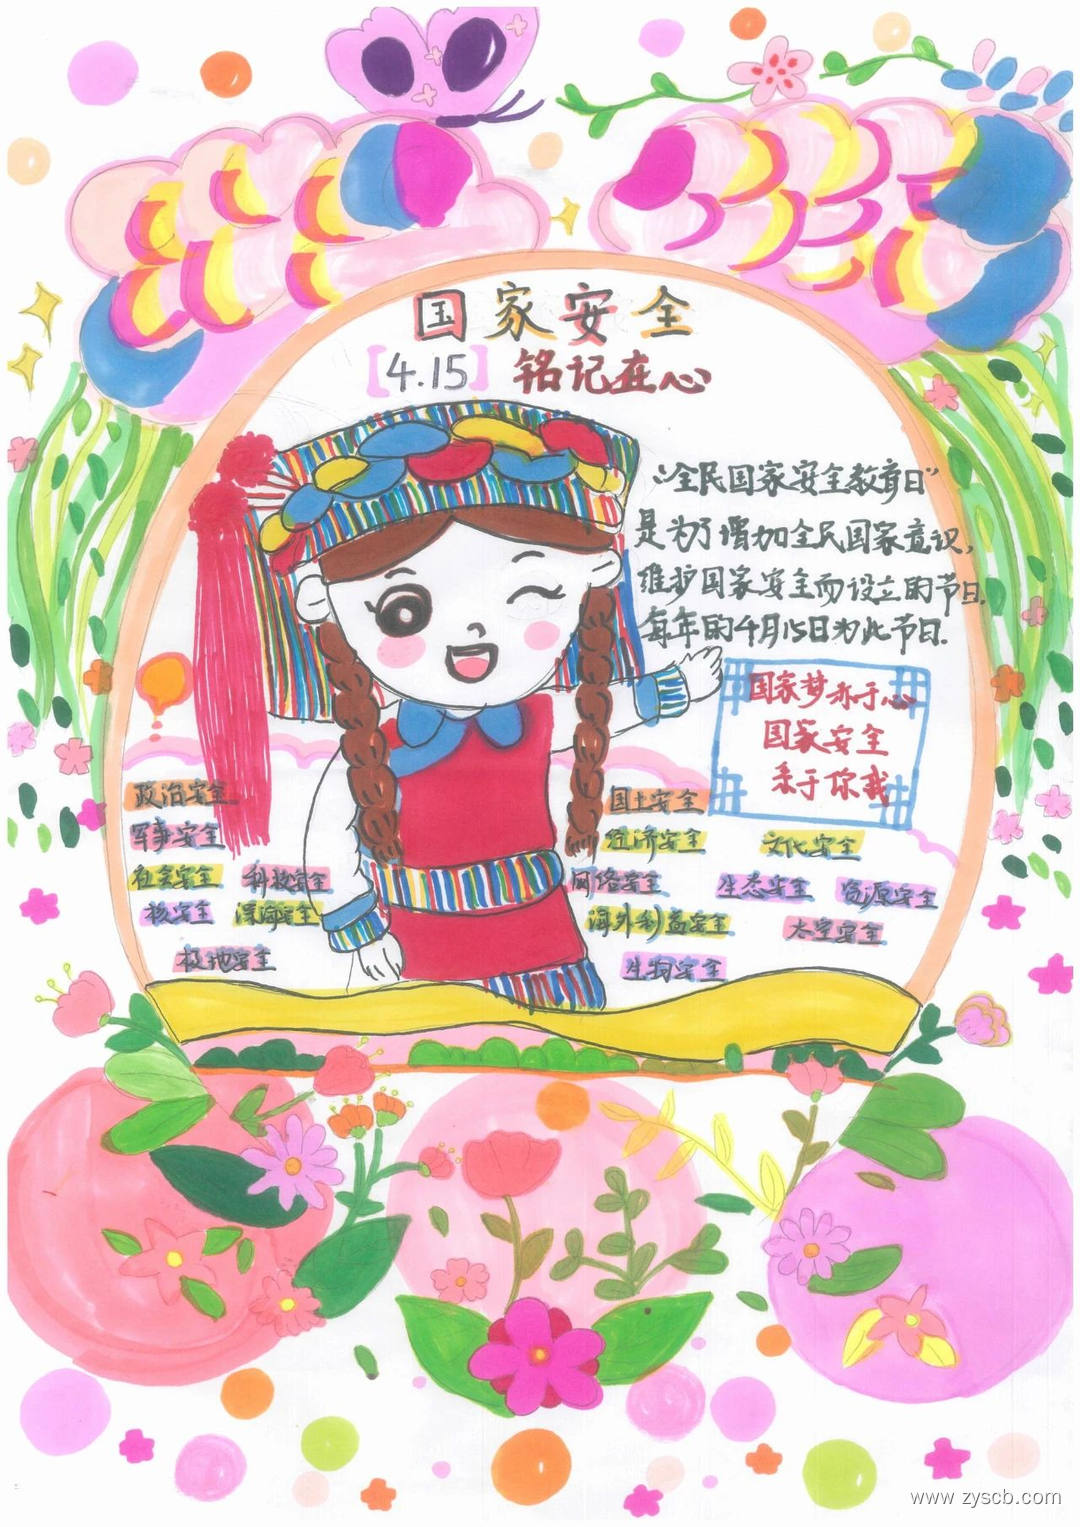 国家安全
[4.15] 铭记在心
“全民国家安全教育日”
是为了增加全民国家意识,
维护国家安全而设立的节日.
每年的4月15日为此节日.
国家梦系于心
国家安全
系于你我
政治安全
军事安全
社会安全 科技安全
核安全 深海安全
极地安全
国土安全
经济安全 文化安全
网络安全 生态安全 资源安全
海外利益安全 太空安全
生物安全
www.zyscb.com